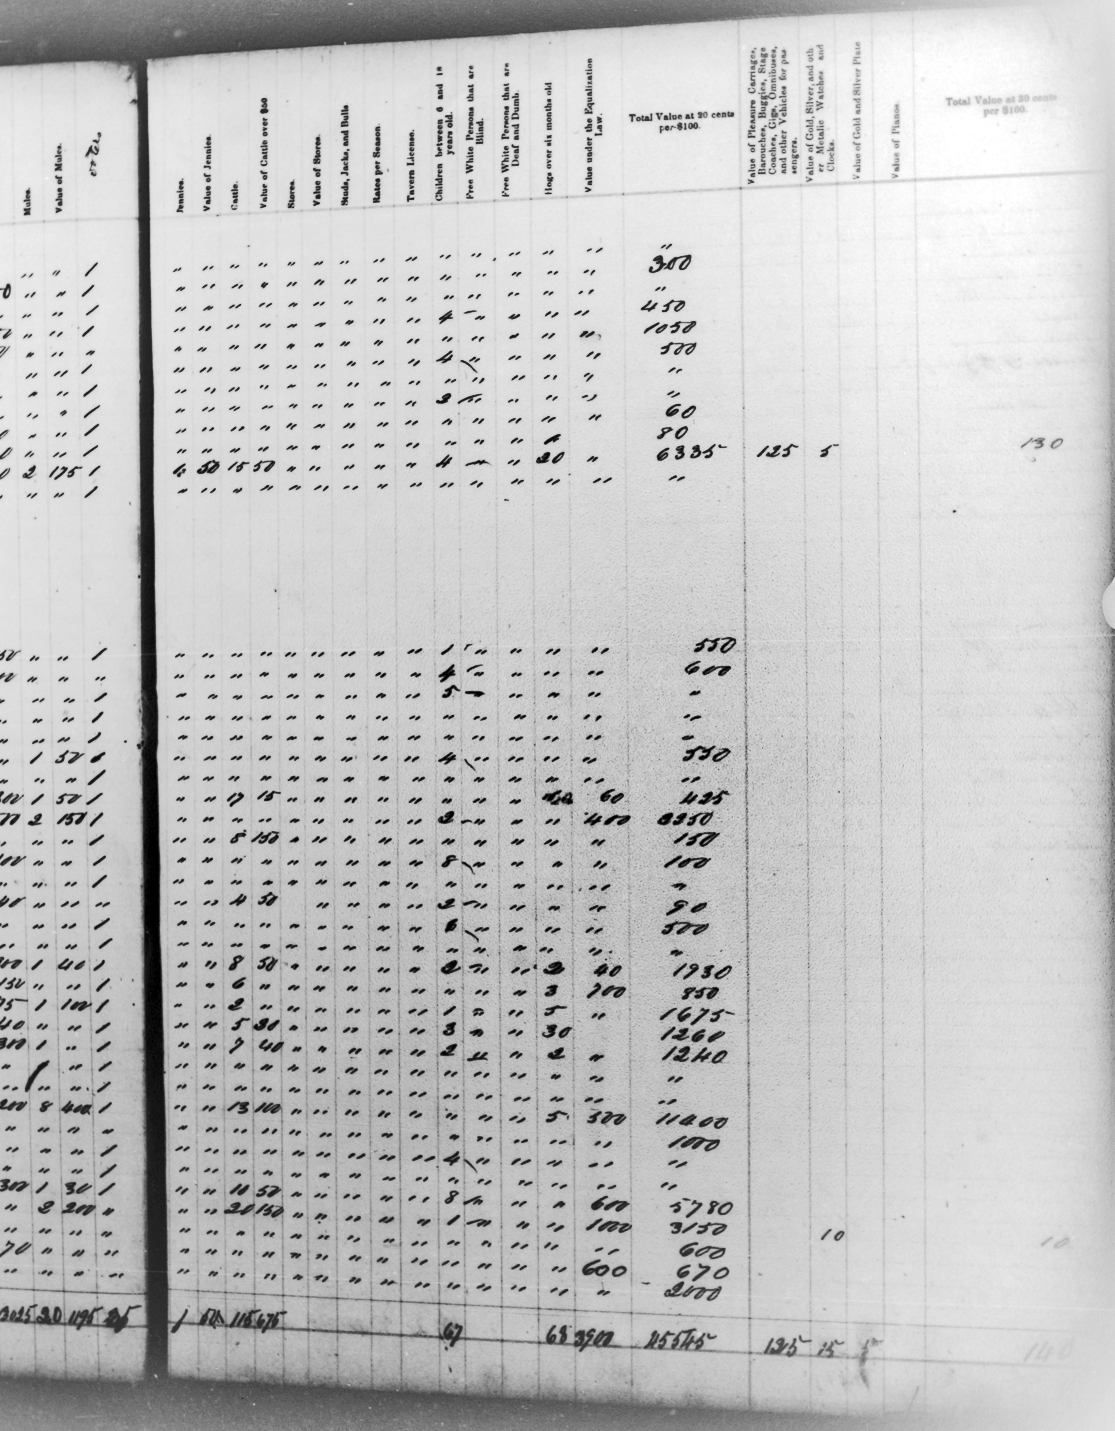 Mules.
Value of Mules.
Jennies.
Value of Jennies.
Cattle.
Value of Cattle over $50
Stores.
Value of Stores.
Studs, Jacks, and Bulls
Rates per Season.
Tavern License.
Children between 6 and 18 years old.
Free White Persons that are Blind.
Free White Persons that are Deaf and Dumb.
Hogs over six months old
Value under the Equalization Law.
Total Value at 20 cents per $100.
Value of Pleasure Carriages, Barouches, Buggies, Stage Coaches, Gigs, Omnibuses, and other Vehicles for passengers.
Value of Gold, Silver, and other Metalic Watches and Clocks.
Value of Gold and Silver Plate
Value of Pianos.
Total Value at 30 cents per $100.
" " 1 " " " " " " " " " " " " " " " "
" " 1 " " " " " " " " " " " " " " " 300
" " 1 " " " " " " " " " " " " " " " "
" " 1 " " " " " " " " " " " 4 " " " " 450
" " " " " " " " " " " " " " " " " " 1050
" " " " " " " " " " " " " 4 " " " " 500
" " 1 " " " " " " " " " " " " " " " "
" " 1 " " " " " " " " " " " 3 " " " " "
" " 1 " " " " " " " " " " " " " " " 60
" " 1 " " " " " " " " " " " " " " 80
2 175 1 50 15 50 " " " " " " 4 " 20 " 6335 125 5 130
" " 1 " " " " " " " " " " " " " " " "
" " 1 " " " " " " " " " " 1 " " " " 550
" " " " " " " " " " " " " 4 " " " 600
" " 1 " " " " " " " " " " 5 " " " " "
" " 1 " " " " " " " " " " " " " " " "
" " 1 " " " " " " " " " " " " " " " "
1 50 " " " " " " " " " " 4 " " " 550
" " 1 " " " " " " " " " " " " " " " "
1 50 1 " " 17 15 " " " " " " " " " 60 425
2 150 1 " " " " " " " " " " 2 " " " 400 3250
" " 1 " " 5 150 " " " " " " " " " " " 150
" " 1 " " " " " " " " " " 8 " " " " 100
" " 1 " " " " " " " " " " " " " " " "
40 " " " " " 4 50 " " " " " 2 " " " " 90
" " 1 " " " " " " " " " " 6 " " " " 500
" " 1 " " " " " " " " " " " " " " " "
1 40 1 " " 8 50 " " " " " " 2 " " 2 40 1930
150 " " 1 " " 6 " " " " " " " " " " 3 700 850
75 1 100 1 " " 2 " " " " " " " 1 " " 5 " 1675
40 " " 1 " " 5 30 " " " " " " 3 " " 30 1260
300 1 " 1 " " 7 40 " " " " " " 2 " " 2 " 1240
" " 1 " " " " " " " " " " " " " " " "
" " 1 " " " " " " " " " " " " " " " "
200 8 400 1 " " 13 100 " " " " " " " " " 5 300 11400
" " " " " " " " " " " " " " " " " " 1000
" " 1 " " " " " " " " " " 4 " " " " "
" " 1 " " " " " " " " " " " " " " " "
300 1 30 1 " " 10 50 " " " " " " 8 " " " 600 5780
" 2 200 " " " 20 150 " " " " " " 1 " " " 1000 3150 10 10
" " " " " " " " " " " " " " " " " " 600
70 " " " " " " " " " " " " " " " " " 600 670
" " " " " " " " " " " " " " " " " " 2000
20 1195 1 50 115 675 67 68 3900 45545 125 15 140